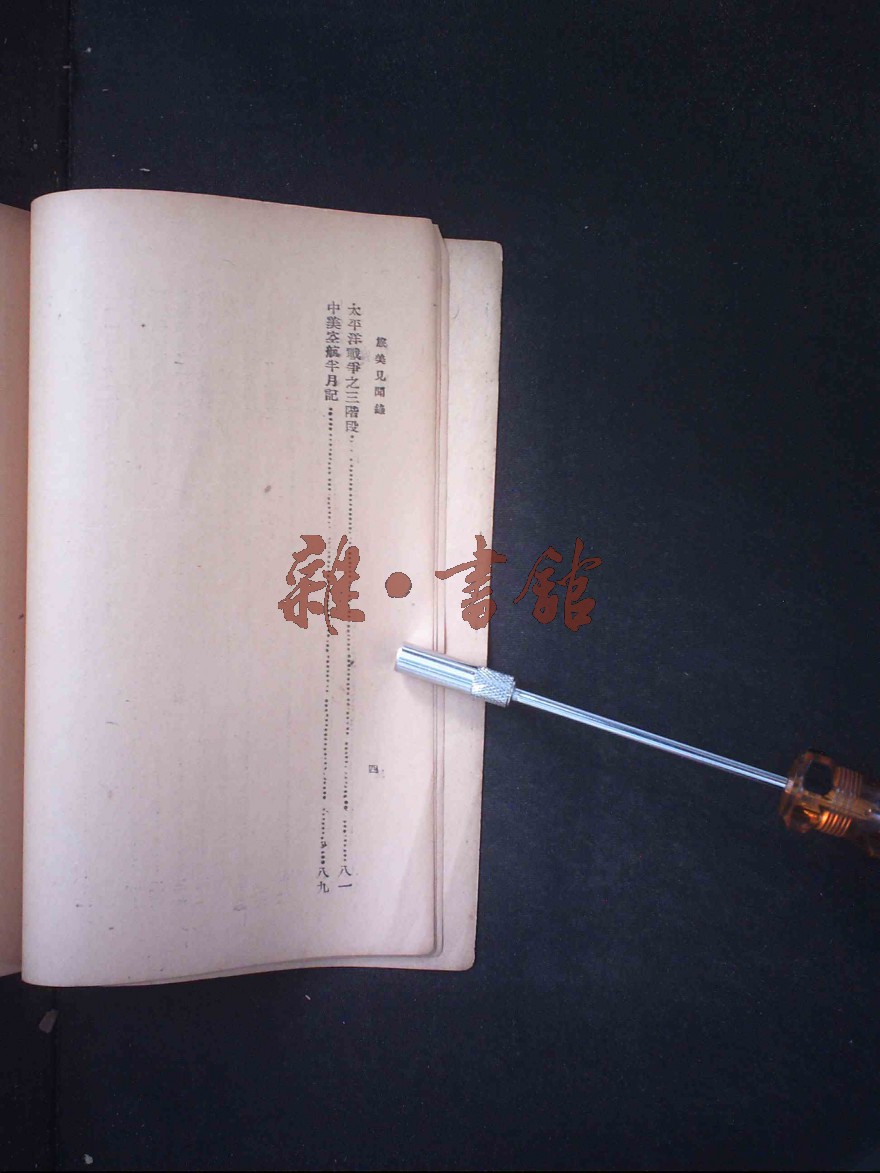 旅美見聞錄
四
太平洋戰爭之三階段……八一
中美空航半月記……八九
雜·書館